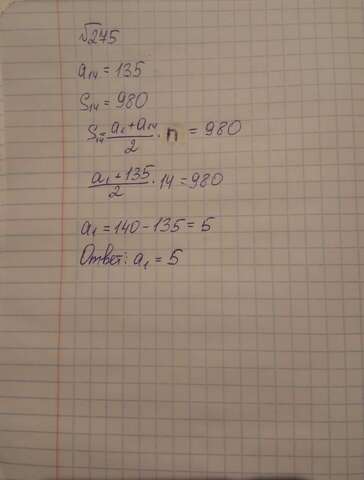 √275
a₁₄ = 135
S₁₄ = 980
S₁₄ = (a₁ + a₁₄)/2 · n = 980
(a₁ + 135)/2 · 14 = 980
a₁ = 140 - 135 = 5
Ответ: a₁ = 5